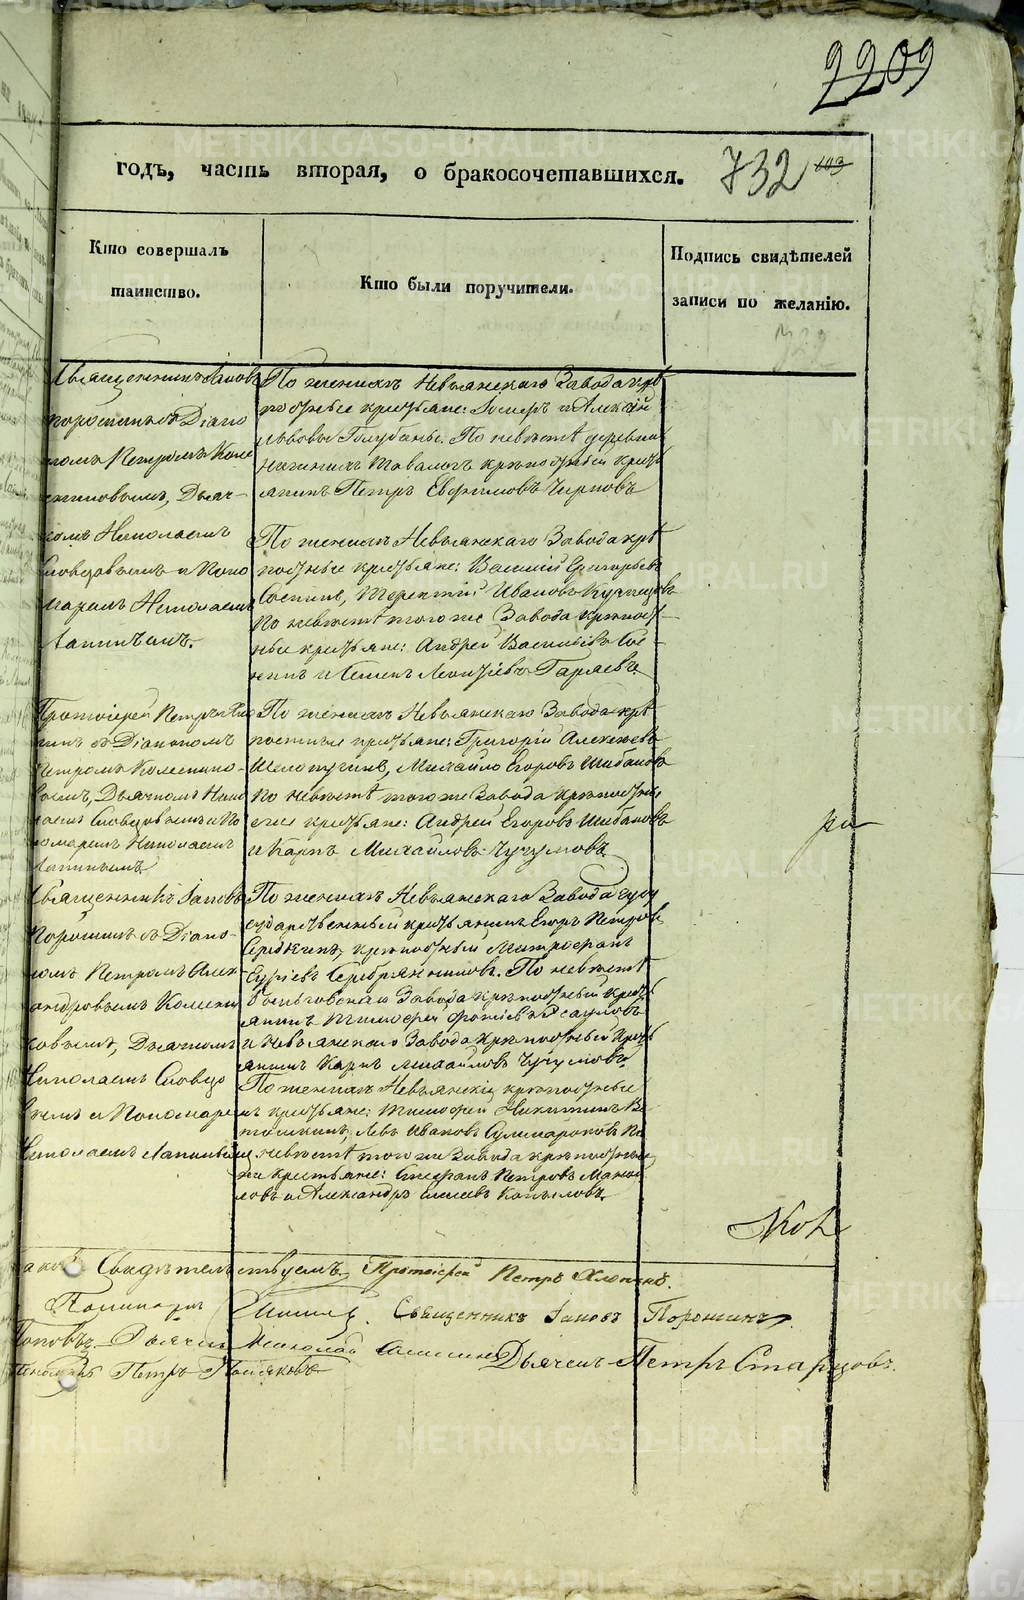 2209
годъ, часть вторая, о бракосочетавшихся. 732 103
Кто совершалъ
таинство.
Кто были поручители.
Подпись свидѣтелей
записи по желанію.
Священникъ Іаковъ
Порошинъ съ Діако
номъ Петромъ Коле
сниковымъ, Дьяч-
комъ Николаемъ
Словцовымъ и Поно
маремъ Николаемъ
Лапинымъ.
По женихѣ Невьянскаго Завода крѣ
постные крестьяне: и Алексѣй
Львовы Голубевы. По невѣстѣ деревни
Нижнихъ Тавологъ крѣпостный кресть
янинъ Петръ Евфимовъ Чирковъ
По женихѣ Невьянскаго Завода крѣ
постные крестьяне: Василій Григорьевъ
Соснинъ, Терентій Ивановъ Кузнецовъ
По невѣстѣ того же Завода крѣпост-
ные крестьяне: Андрей Васильевъ Сос-
нинъ и Семенъ Леонтіевъ Гаряевъ.
Протоіерей Петръ Хло
пинъ съ Діакономъ
Петромъ Колеснико-
вымъ, Дьячкомъ Нико
лаемъ Словцовымъ и По
номаремъ Николаемъ
Лапинымъ
По женихѣ Невьянскаго Завода крѣ
постные крестьяне: Григорій Алексѣевъ
Шелопугинъ, Михайло Егоровъ Шибановъ
По невѣстѣ того же Завода крѣпостные
крестьяне: Андрей Егоровъ Шибановъ
и Карпъ Михайловъ Чучумовъ
ра
Священникъ Іаковъ
Порошинъ съ Діако-
номъ Петромъ Алек
сандровымъ Колесни
ковымъ, Дьячкомъ
Николаемъ Словцо
вымъ и Пономаре
Николаемъ Лапинымъ
По женихѣ Невьянскаго Завода
сударственный крестьянинъ Егоръ Петровъ
Середкинъ, крѣпостный Митрофанъ
Серебрянниковъ. По невѣстѣ
Завода крѣпостный кресть
янинъ Тимофей Есауловъ
и Невьянскаго Завода крѣпостный кресть
янинъ Карпъ Михайловъ Чучумовъ
По женихѣ Невьянскіе крѣпостные
крестьяне: Тимофей Никитинъ
Левъ Ивановъ Сумароковъ По
невѣстѣ того же Завода крѣпостные
же крестьяне: Стефанъ Петровъ
и Александръ Копыловъ
Свидѣтельствуемъ, Протоіерей Петръ Хлопинъ.
Священникъ Іаковъ Порошинъ
Поповъ. Дьячекъ Николай Дьячекъ Петръ Старцовъ.
Пономарь Петръ
METRIKI.GASO-URAL.RU